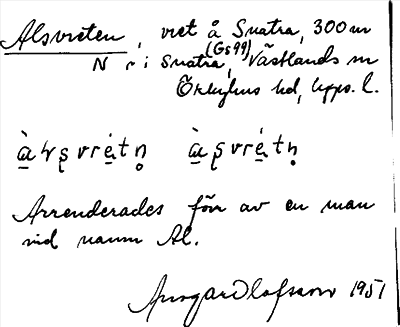 Alsvreten, vret å Snatra, 300 m
N r i Snatra, (Gs 99) Västlands sn
Örbyhus hd, Upps. l.
Arrenderades förr av en man
vid namn Al.
Ansgar Olofsson 1951